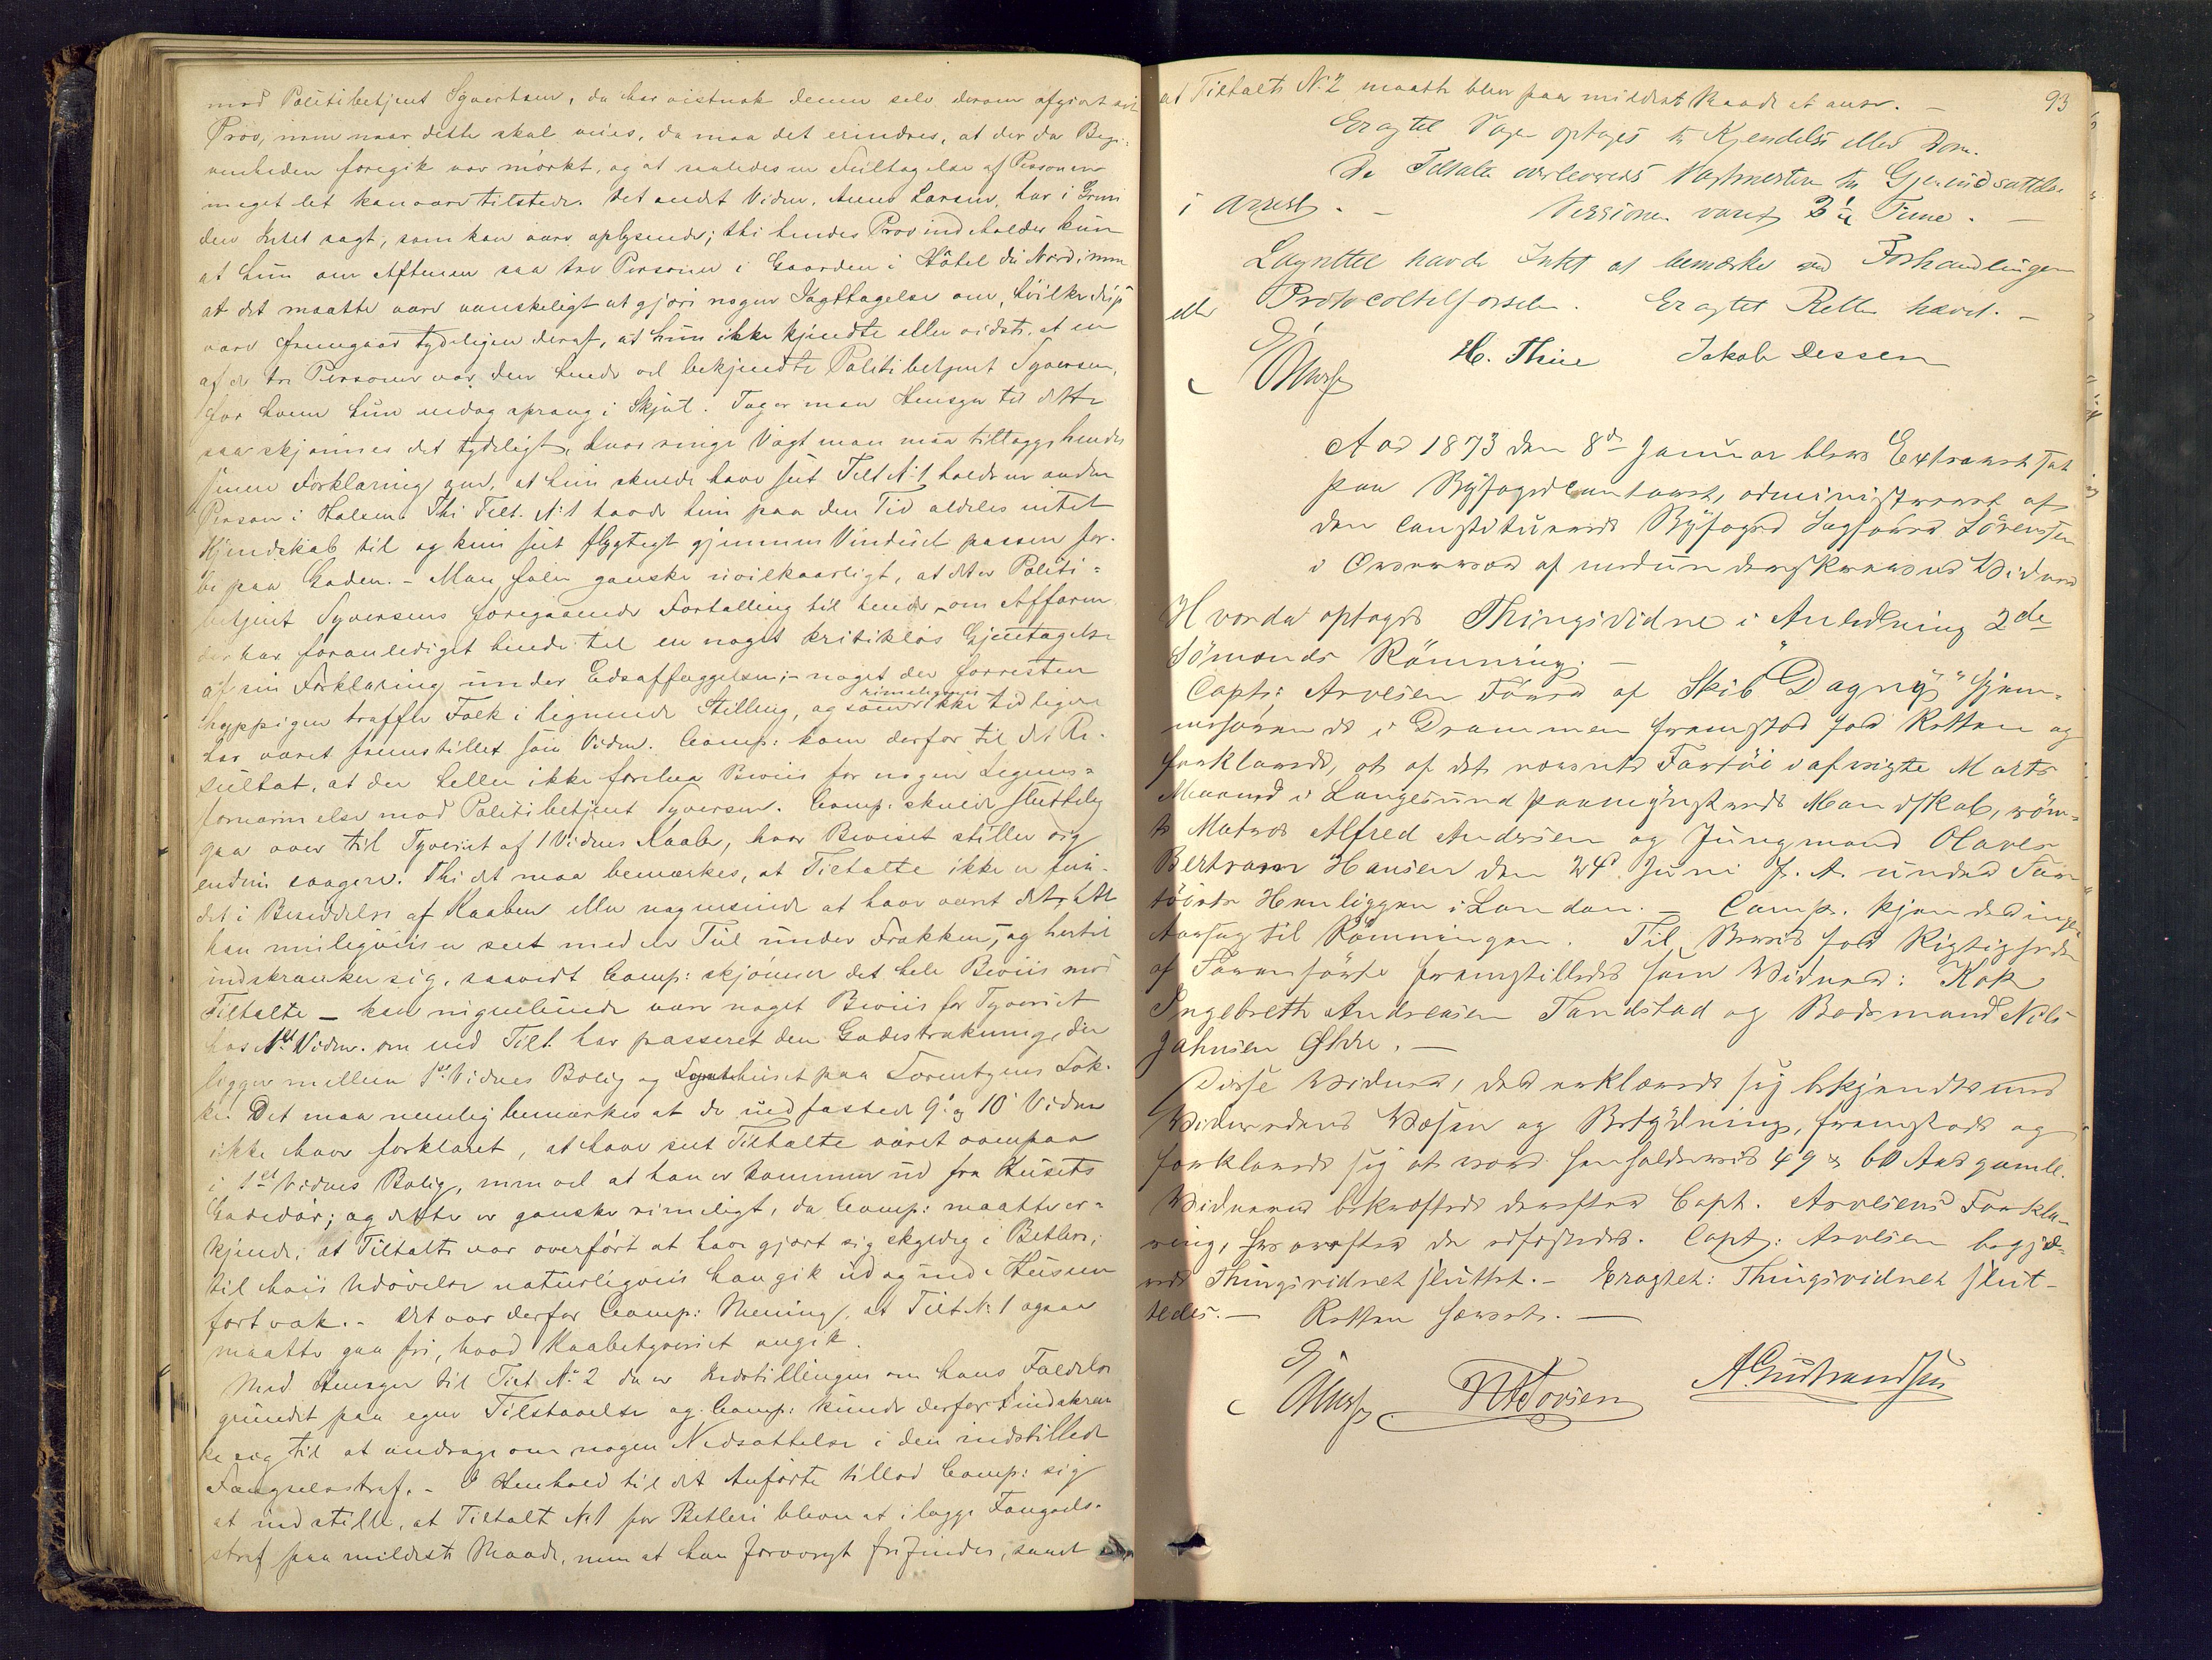 med Politibetjent Syvertsen, da har vistnok denne selv derom afgivet sit
Prov, men naar dette skal vies, da maa det erindres, at der da Begi-
venheden foregik var mørkt, og at saaledes en Feiltagelse af Personen
meget let kan være tilstede. Det andet Vidne, Anne Larsen, har i Grun
den Intet sagt, som kan være oplysende; thi hendes Prov indeholder kun
at hun om Aftenen saa tre Personer i Gaarden i Hôtel du Nord; men
at det maatte være vanskeligt at gjøre nogen Iagttagelse om, hvilke disse
vare fremgaar tydeligen deraf, at hun ikke kjendte eller vidste, at en
af de tre Personer var den hende vel bekjendte Politibetjent Syversen,
for hvem hun endog sprang i Skjul. Tager man Hensyn til dette
saa skjønnes det tydeligt, hvor ringe Vægt man maa tillægge hendes
senere Forklaring om, at hun skulde have seet Tilt. N. 1 holde en anden
Person i Halsen. Thi Tilt. N. 1 havde hun paa den Tid aldeles intet
Kjendskab til og kun seet flygtigt gjennem Vinduet passere for-
bi paa Gaden. - Man føler ganske uvilkaarligt, at det er Politi-
betjent Syversens foregaaende Fortælling til hende om Affæren
der har foranlediget hende til en noget kritikløs Gjentagelse
af sin Forklaring under Edsaflæggelsen; - noget der forresten
hyppigen træffer Folk i lignende Stilling, og som rimeligviis ikke tidligere
har været fremstillet som Vidne. Comp: kom derfor til det Re-
sultat, at der heller ikke forelaa Beviis for nogen Legems-
fornærmelse mod Politibetjent Syversen. Comp. skulde sluttelig
gaa over til Tyveriet af 1 Vidnes Kaabe, hvor Beviset stiller sig
endnu svagere. Thi det maa bemærkes, at Tiltalte ikke er fun-
det i Besiddelse af Kaaben eller nogensinde at have været det, at
han muligviis er seet med en Tøi under Frakken, og hertil
indskrænker sig, saavidt Comp: skjønner det hele Beviis mod
Tiltalte - kan ingenlunde være noget Beviis for Tyveriet
hos 1ste Vidne. om end Tilt. har passeret den Gadestrækning, der
ligger mellem 1ste Vidnes Bolig og huset paa Lorentzens Løk-
ke. Det maa nemlig bemærkes at de indfattede 9' og 10' Vidne
ikke have forklaret, at have seet Tiltalte været ovenpaa
i 1ste Vidnes Bolig, men vel at han er kommen ud fra Husets
Gadedør; og dette er ganske rimeligt, da Comp: maatte er-
kjende, at Tiltalte var overført at have gjort sig skyldig i Betleri,
til hvis Udøvelse naturligviis han gik ud og ind i Husene
fort væk. - Det var derfor Comp: Mening, at Tilt. N. 1 ogsaa
maatte gaa fri, hvad Kaabetyveriet angik.
Med Hensyn til Tilt. N. 2 da er Indstillingen om hans Fældelse
grundet paa egen Tilstaaelse og Comp: kunde derfor indskræn
ke sig til at andrage om nogen Nedsættelse i den indstillede
Fængselsstraf. - I Henhold til det Anførte tillod Comp: sig
at indstille, at Tiltalt N. 1 for Betleri bliver at ilægge Fængsels-
straf paa mildeste Maade, men at han forøvrigt frifindes, samt
93
at Tiltalte N. 2 maatte blive paa mildeste Maade at anse. -
Eragtet Sagen optages til Kjendelse eller Dom.
De Tiltalte overleveredes Vagtmesteren til Gjenindsættelse
i Arrest. - Sessionen varet 3½ Time. -
Lagrettet havde Intet at bemærke ved Forhandlingen
eller Protocoltilførselen. Eragtet Retten hævet. -
H. Thue Jakob Dessen
Aar 1873 den 8de Januar blev Extraret sat
paa Byfogedcontoret, administreret af
den constituerede Byfoged Sagfører Sörensen
i Overvær af nedunderskrevne Vidner
Hvorda optoges Thingsvidne i Anledning 2de
Sömænds Römning. -
Capt: Arvesen Förer af Skib "Dagny" hjem-
mehörende i Drammen fremstod for Retten og
forklarede, at af det nævnte Fartöi i afvigte Marts
Maaned i Langesund paamönstrede Mandskab, röm-
te Matros Alfred Andersen og Jungmand Olaves
Bertram Hansen den 24de Juni f. A. under Far-
töiets Henliggen i London. - Comp. kjender ingen
Aarsag til Römningen. Til Beviis for Rigtigheden
af Foranförte fremstilledes som Vidner: Kok
Ingebreth Andreasen Tandstad og Bødsmand Nils
Johnsen Øhre. -
Disse Vidner, der erklærede sig bekjendte med
Vidneedens Væsen og Betydning, fremstode og
forklarede sig at være henholdsvis 49 & 60 Aar gamle.
Vidnerne bekræftede derefter Capt. Arvesens Forkla-
ring, hvorefter de edfæstedes. Capt: Arvesen begjæ-
rede Thingsvidnet sluttet. - Eragtet: Thingsvidnet slut-
tedes. - Retten hævet. -
A Gulbrandsen